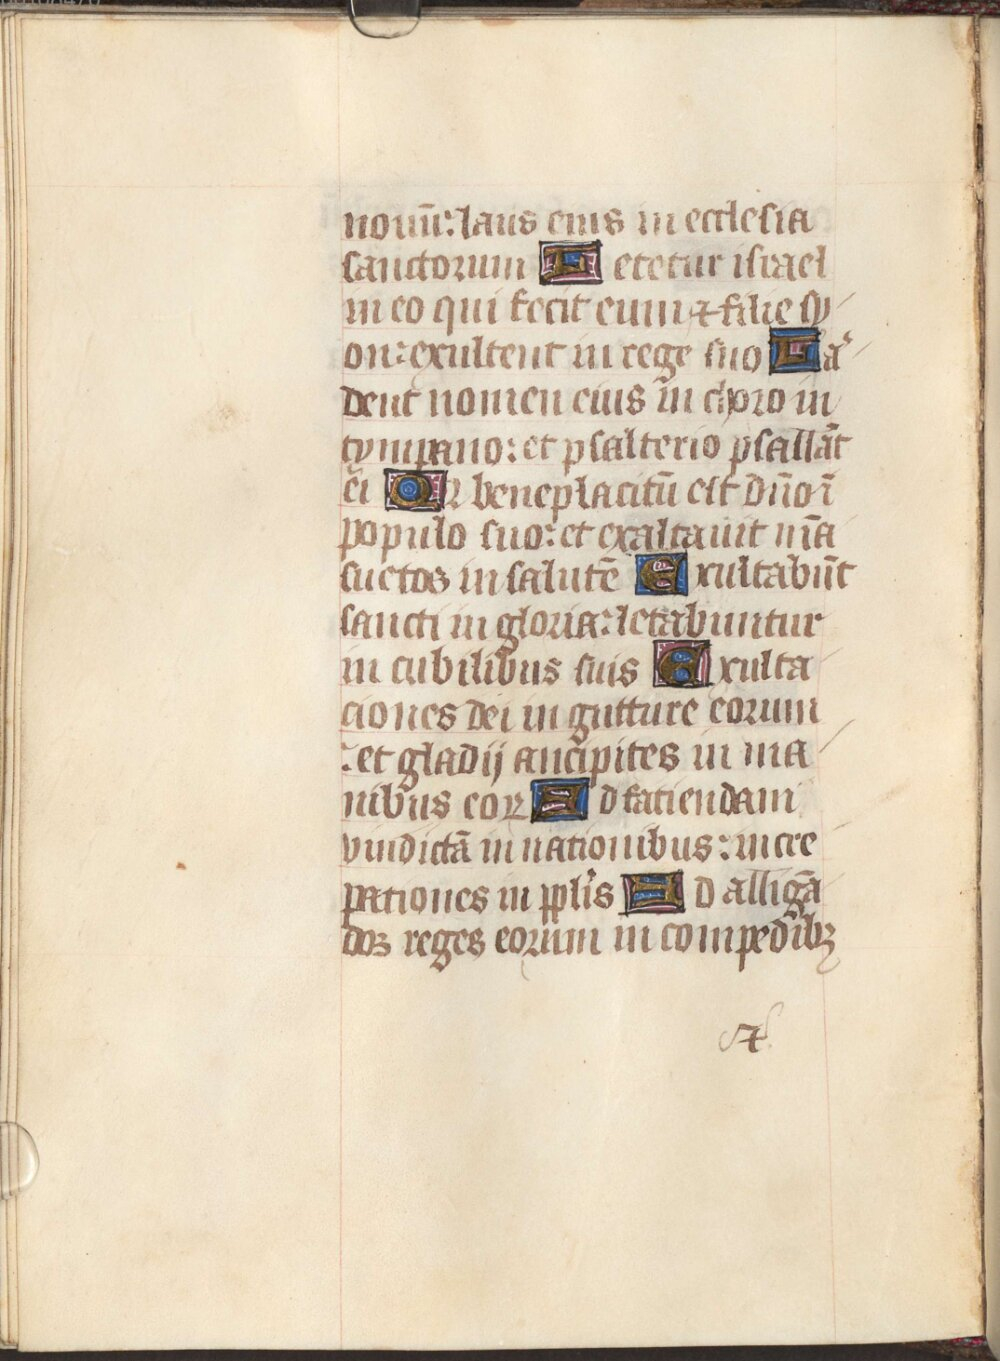 nouū: laus eius in ecclesia
sanctorum Letetur israel
in eo qui fecit eum ⁊ filie sy
on: exultent in rege suo Lā
dent nomen eius in choro in
tympano: et psalterio psallāt
ei Qꝛ beneplacitū est dño ī
populo suo: et exaltauit mā
suetos in salutē Exultabūt
sancti in gloria: letabuntur
in cubilibus suis Exulta
ciones dei in gutture eorum
: et gladij ancipites in ma
nibus eoꝝ Ad faciendam
vindictā in nationibus: incre
pationes in pplīs Ad alligā
dos reges eorum in compedibꝫ
⁊